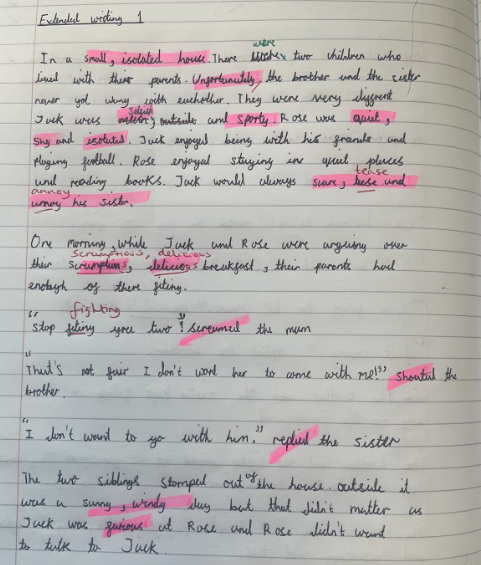 Extended writing 1
In a small, isolated house. There were two children who
lived with their parents. Unfortunately, the brother and the sister
never got along with eachother. They were very different
selfish
Jack was , outside and sporty. Rose was quiet,
shy and isolated. Jack enjoyed being with his friends and
playing football. Rose enjoyed staying in quiet places
tease
and reading books. Jack would always scare, teese and
annoy
unnoy his sister.
One morning, while Jack and Rose were arguing over
scrumptious, delicious
their scrumptions, delicious breakfast, their parents had
enough of there fiting.
fighting
"stop fiting you two"! screamed the mum
"That's not fair I don't want her to come with me!" shouted the
brother.
"I don't want to go with him." replied the sister
The two siblings stomped out of the house. outside it
was a sunny, windy day but that didn't matter as
Jack was furous at Rose and Rose didn't want
to talk to Jack.